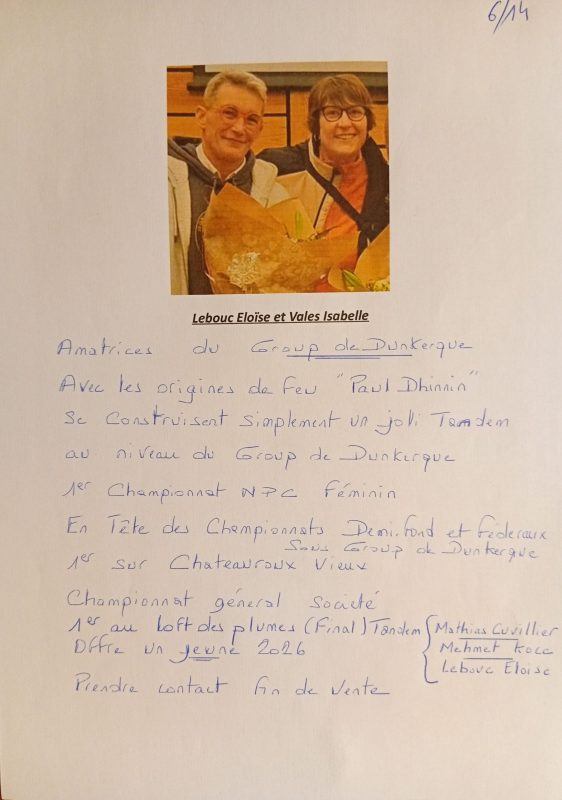 6/14
Lebouc Eloïse et Vales Isabelle
Amatrices du Group de Dunkerque
Avec les origines de feu "Paul Dhinnin"
Se Construisent simplement un joli Tandem
au niveau du Group de Dunkerque
1er Championnat NPC Féminin
En Tête des Championnats Demi.fond et Fédéraux
Sous Group de Dunkerque
1er sur Chateauroux Vieux
Championnat général Société
1er au Loft des plumes (Final) Tandem { Mathias Cuvillier
Offre un jeune 2026 Mehmet Kocc
Lebouc Eloise
Prendre contact fin de Vente